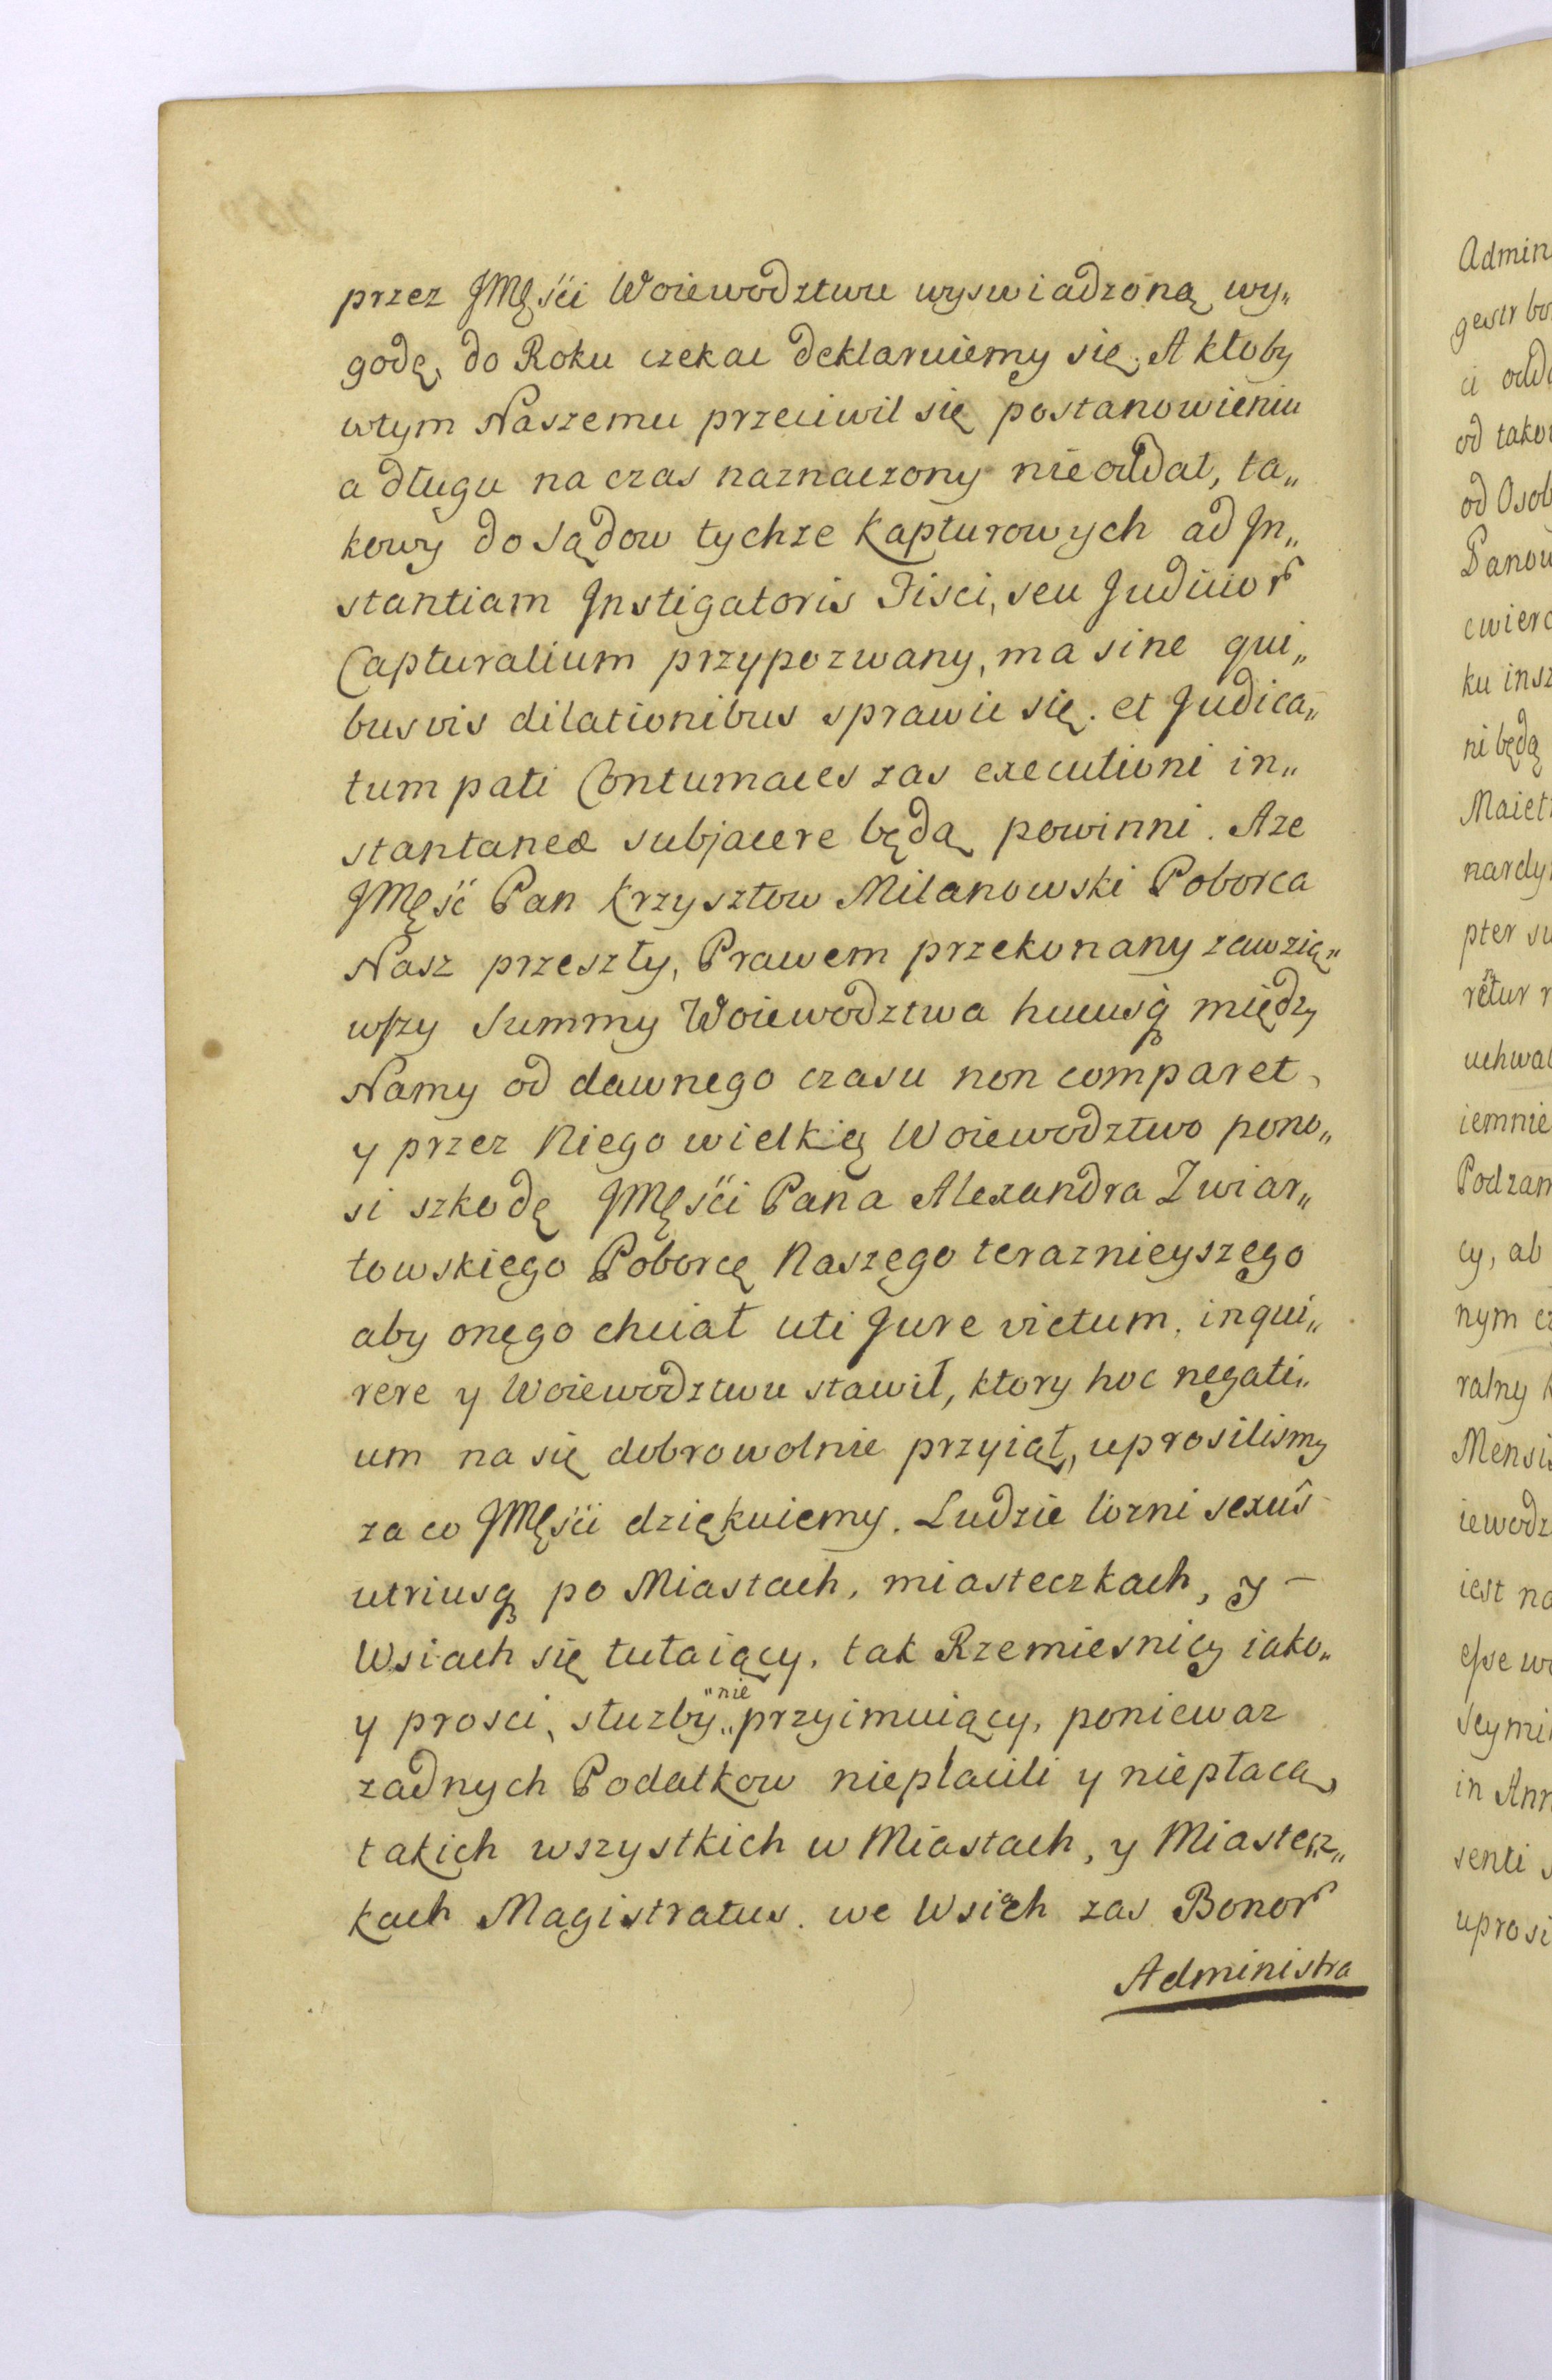 przez JMęśći Woiewodztwu wyswiadzoną wy„
godę, do Roku czekac deklaruiemy się. A ktoby
wtym Naszemu przeciwil się postanowieniu
a długu na czas naznaczony nieoddał, ta„
kowy do Sądow tychze Kapturowych ad In„
stantiam Instigatoris Fisci, seu Judicior
Capturalium przypozwany, ma sine qui„
busvis dilationibus sprawic się. et Judica„
tum pati Contumaces zas executioni in„
stantaneæ subjacere będą powinni. Aze
JMęść Pan Krzysztow Milanowski Poborca
Nasz przeszły, Prawem przekonany zawzią„
wszy Summy Woiewodztwa hucusq między
Namy od dawnego czasu non comparet,
y przez Niego wielkię Woiewodztwo pono„
si szkodę JMęśći Pana Alexandra Zwiar„
towskięgo Poborcę Naszęgo teraznieyszęgo
aby onęgo chciał uti Jure victum, inqui„
rere y Woiewodztwu stawił, ktory hoc negati„
um na się dobrowolnie przyiął, uprosilismy
za co JMęśći dziękuiemy. Ludzie lózni sexûs
utriusq po Miastach, miasteczkach, y –
Wsiach się tułaiący, tak Rzemiesnicy iako„
y prosci, służby „nie„ przyimuiący, poniewaz
zadnych Podatkow niepłacili y niepłacą,
takich wszystkich w Miastach, y Miastecz„
kach Magistratus. we Wsiach zas Bonor
Administra
Admin
gestr
ci odd
od tako
od Osob
Panow
cwierc
ku insz
ni będą
Maięt
nardy
pter su
uchwal
iemnie
Podzam
cy, ab
nym cz
ralny k
Mensis
iewodz
iest na
esse wo
Seymi
in Ann
senti s
uprosi